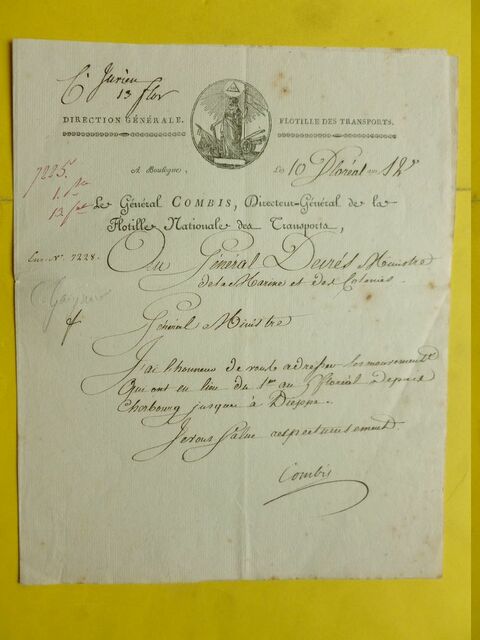 Cn Jurien
13 flor
DIRECTION GÉNÉRALE. FLOTILLE DES TRANSPORTS.
A Boulogne, Les 10 Floréal an 12e
7225.
Le Général COMBIS, Directeur-Général de la
Flotille Nationale des Transports,
Enr. No. 7228.
Au Général Decrés Ministre
de la Marine et des Colonies
Général Ministre
J'ai l'honneur de vous adresser les mouvements
qui ont eu lieu du 1er au Floréal depuis
Cherbourg jusques à Dieppe.
Je vous salue respectueusement.
Combis